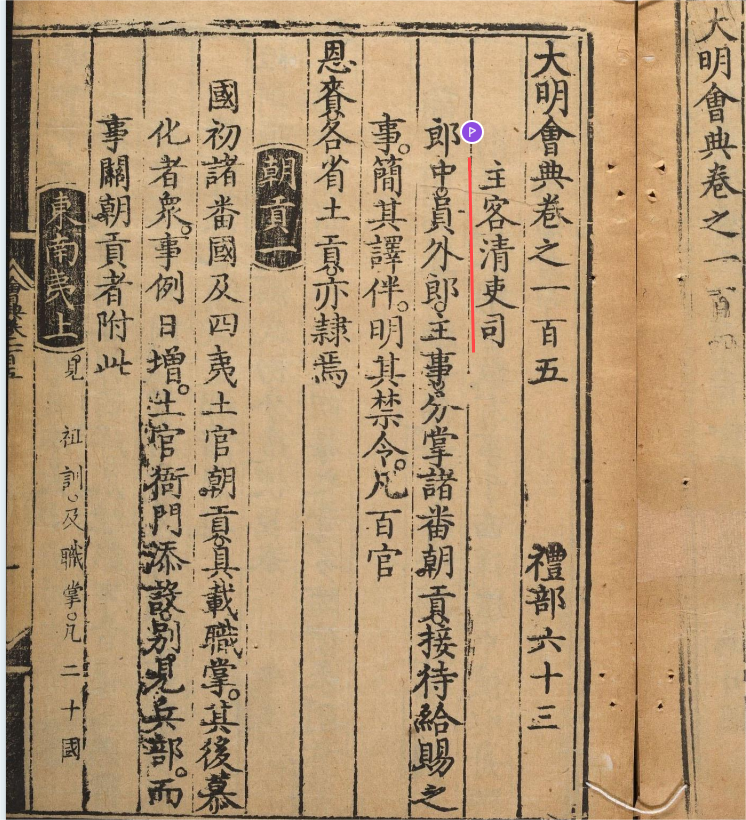 大明會典卷之一百
大明會典卷之一百五 禮部六十三
主客清吏司
郎中。員外郎。主事。分掌諸番朝貢接待給賜之
事。簡其譯伴。明其禁令。凡百官
恩賚。各省土貢。亦隸焉
朝貢一
國初諸番國及四夷土官朝貢。具載職掌。其後慕
化者衆。事例日增。土官衙門添設。別見兵部。而
事關朝貢者附此
東南夷上 見 祖訓。及職掌。凡二十國